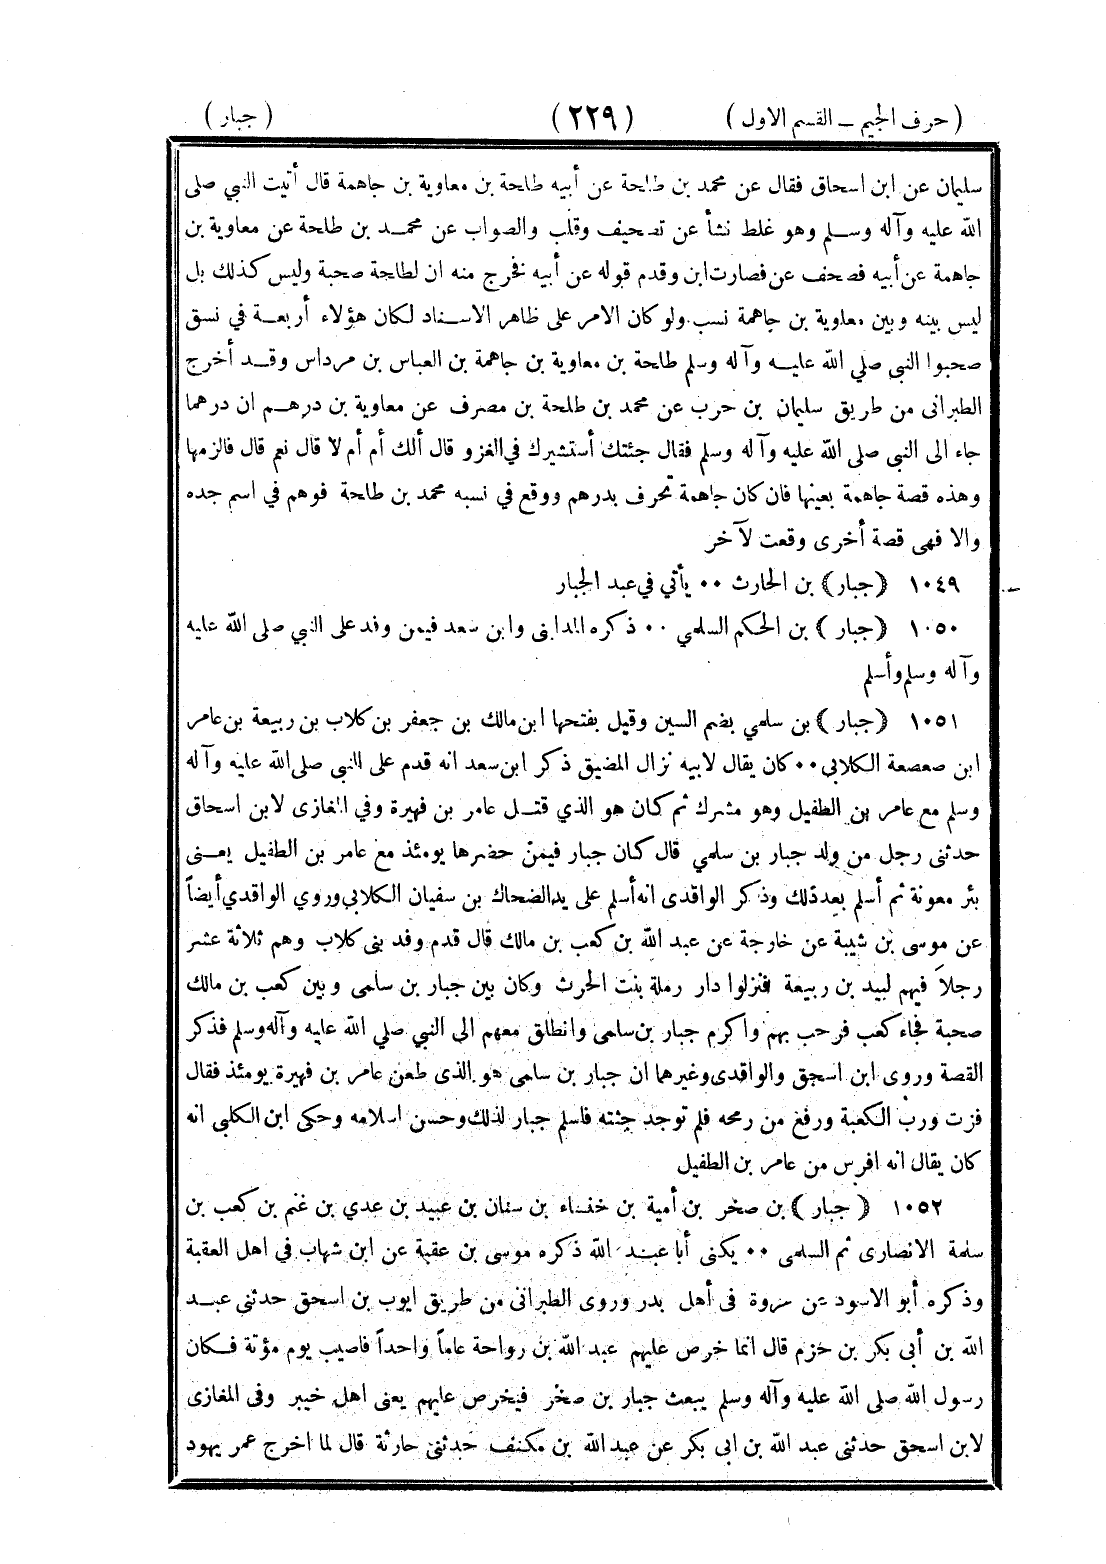 ( حرف الجيم ــ القسم الاول ) (٢٢٩) ( جبار )
سليمان عن ابن اسحاق فقال عن محمد بن طلحة عن أبيه طلحة بن معاوية بن جاهمة قال أتيت النبي صلى
الله عليه وآله وسلم وهو غلط نشأ عن تصحيف وقلب والصواب عن محمد بن طلحة عن معاوية بن
جاهمة عن أبيه فصحف عن فصارت ابن وقدم قوله عن أبيه فخرج منه ان لطلحة صحبة وليس كذلك بل
ليس بينه وبين معاوية بن جاهمة نسب ولو كان الامر على ظاهر الاسناد لكان هؤلاء أربعة في نسق
صحبوا النبي صلي الله عليه وآله وسلم طلحة بن معاوية بن جاهمة بن العباس بن مرداس وقد أخرج
الطبرانى من طريق سليمان بن حرب عن محمد بن طلحة بن مصرف عن معاوية بن درهم ان درهما
جاء الى النبي صلى الله عليه وآله وسلم فقال جئتك أستشيرك في الغزو قال ألك أم أم لا قال نعم قال فالزمها
وهذه قصة جاهمة بعينها فان كان جاهمة تحرف بدرهم ووقع في نسبه محمد بن طلحة فوهم في اسم جده
والا فهى قصة أخرى وقعت لآخر
١٠٤٩ ﴿جبار﴾ بن الحارث ٠٠ يأتي في عبد الجبار
١٠٥٠ ﴿جبار﴾ بن الحكم السلمي ٠٠ ذكره المدايني وابن سعد فيمن وفد على النبي صلى الله عليه
وآله وسلم وأسلم
١٠٥١ ﴿جبار﴾ بن سلمي بضم السين وقيل بفتحها ابن مالك بن جعفر بن كلاب بن ربيعة بن عامر
ابن صعصعة الكلابي ٠٠ كان يقال لابيه نزال المضيق ذكر ابن سعد انه قدم على النبي صلى الله عليه وآله
وسلم مع عامر بن الطفيل وهو مشرك ثم كان هو الذي قتل عامر بن فهيرة وفي المغازى لابن اسحاق
حدثنى رجل من ولد جبار بن سلمي قال كان جبار فيمن حضرها يومئذ مع عامر بن الطفيل يعنى
بئر معونة ثم أسلم بعد ذلك وذكر الواقدى انه أسلم على يد الضحاك بن سفيان الكلابي وروي الواقدي أيضاً
عن موسى بن شيبة عن خارجة عن عبد الله بن كعب بن مالك قال قدم وفد بنى كلاب وهم ثلاثة عشر
رجلاً فيهم لبيد بن ربيعة فنزلوا دار رملة بنت الحرث وكان بين جبار بن سلمى وبين كعب بن مالك
صحبة فجاء كعب فرحب بهم واكرم جبار بن سلمى وانطلق معهم الى النبي صلي الله عليه وآله وسلم فذكر
القصة وروى ابن اسحق والواقدى وغيرهما ان جبار بن سلمى هو الذى طعن عامر بن فهيرة يومئذ فقال
فزت ورب الكعبة ورفع من رمحه فلم توجد جثته فاسلم جبار لذلك وحسن اسلامه وحكى ابن الكلبى انه
كان يقال انه افرس من عامر بن الطفيل
١٠٥٢ ﴿جبار﴾ بن صخر بن أمية بن خنساء بن سنان بن عبيد بن عدي بن غنم بن كعب بن
سلمة الانصارى ثم السلمى ٠٠ يكنى أبا عبد الله ذكره موسى بن عقبة عن ابن شهاب فى اهل العقبة
وذكره أبو الاسود عن عروة فى أهل بدر وروى الطبرانى من طريق ايوب بن اسحق حدثنى عبد
الله بن أبى بكر بن خزم قال انما خرص عليهم عبد الله بن رواحة عاماً واحداً فاصيب يوم مؤتة فكان
رسول الله صلى الله عليه وآله وسلم يبعث جبار بن صخر فيخرص عليهم يعنى اهل خيبر وفى المغازى
لابن اسحق حدثنى عبد الله بن ابى بكر عن عبد الله بن مكنف حدثنى حارثة قال لما اخرج عمر يهود